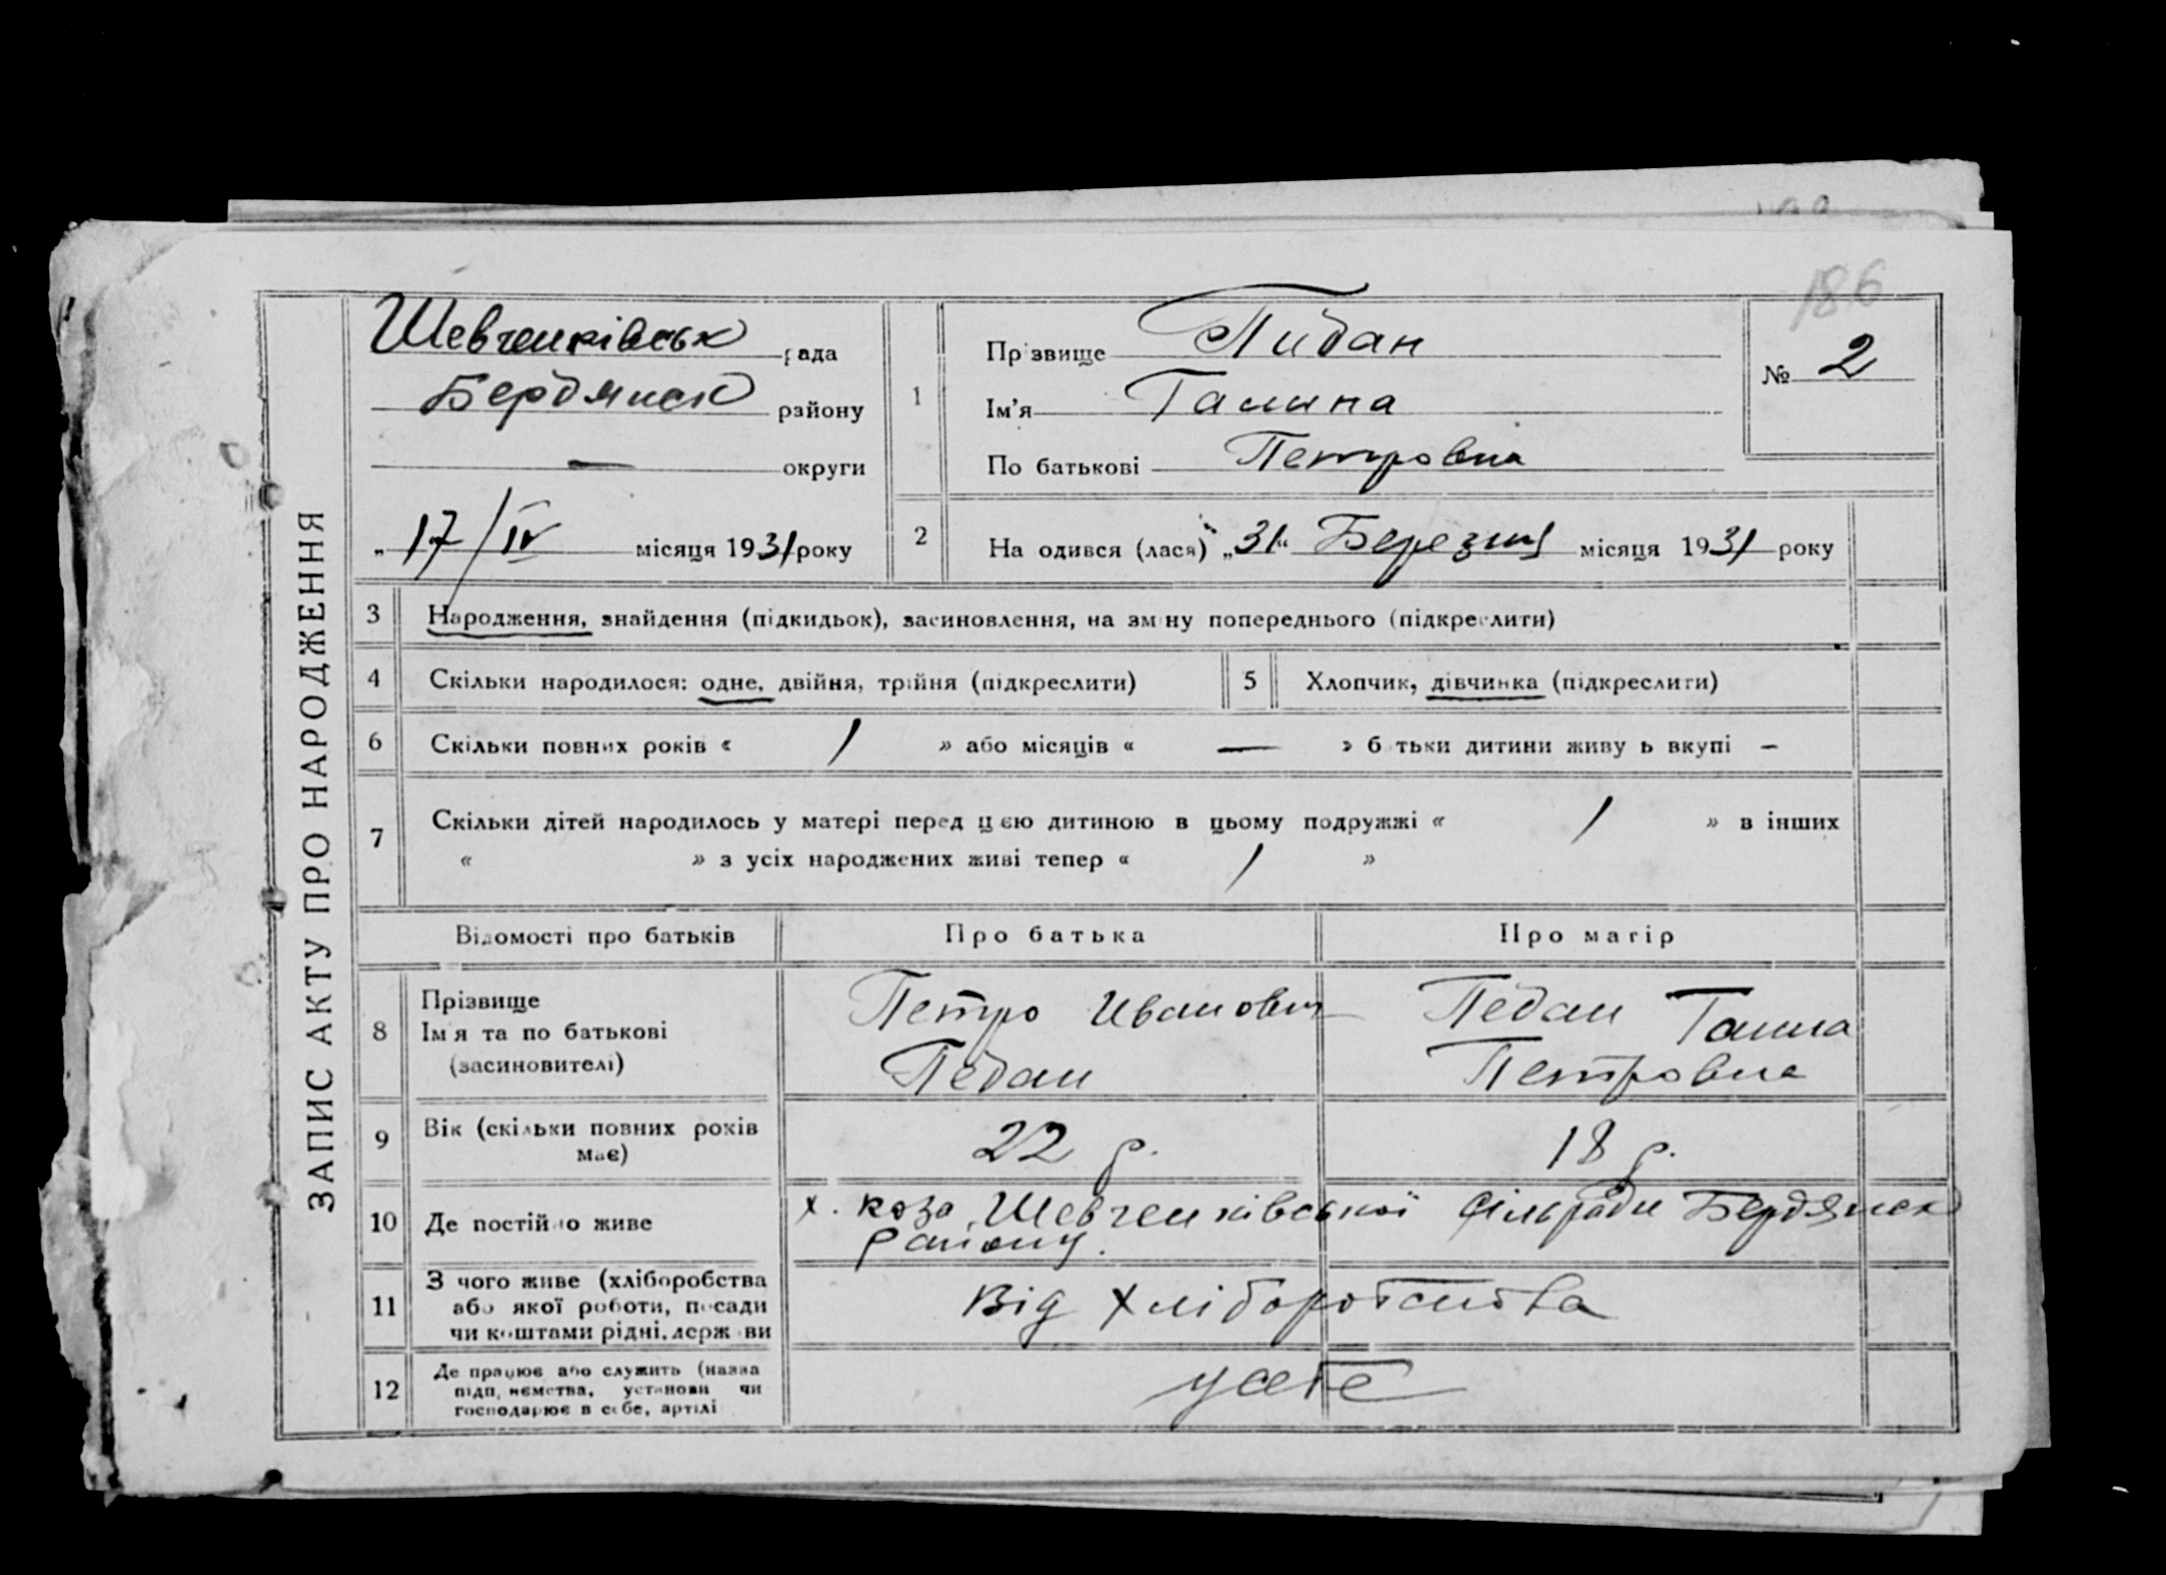 186
ЗАПИС АКТУ ПРО НАРОДЖЕННЯ
Шевченківськ рада
Бердянск району
— округи
„ 17/IV місяця 1931 року
1
Прізвище Пидан
Ім'я Галина
По батькові Петровна
№ 2
2
На одився (лася) „31“ Березня місяця 1931 року
3 Народження, знайдення (підкидьок), засиновлення, на зміну попереднього (підкреслити)
4 Скільки народилося: одне, двійня, трійня (підкреслити)
5 Хлопчик, дівчинка (підкреслити)
6 Скільки повних років « 1 » або місяців « — » батьки дитини живуть вкупі –
7 Скільки дітей народилось у матері перед цією дитиною в цьому подружжі « 1 » в інших
« » з усіх народжених живі тепер « 1 »
Відомості про батьків Про батька Про матір
8 Прізвище
Ім'я та по батькові
(засиновителі)
Петро Иванович
Педан
Педан Ганна
Петровна
9 Вік (скільки повних років
має)
22 р.
18 р.
10 Де постійно живе
х. Шевченківської сільради Бердянск
району.
11 З чого живе (хліборобства
або якої роботи, посади
чи коштами рідні, держави
Від хліборобства
12 Де працює або служить (назва
підприємства, установи чи
господарює в себе, артілі